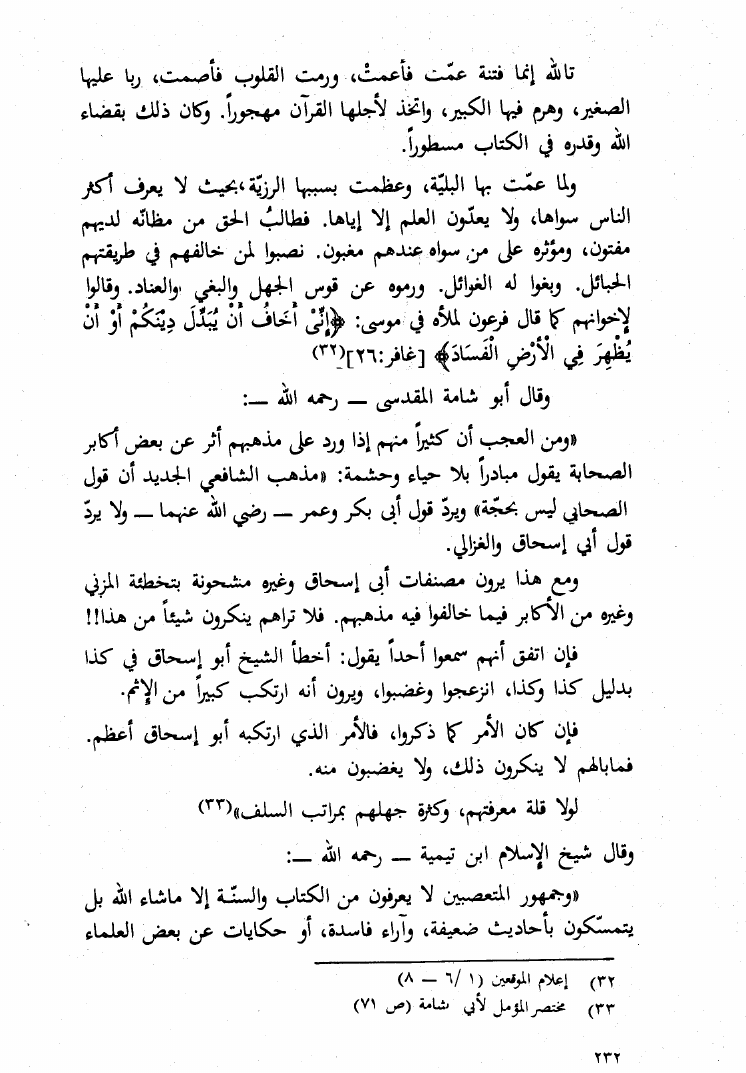 تالله إنما فتنة عمّت فأعمتْ، ورمت القلوب فأصمت، ربا عليها
الصغير، وهرم فيها الكبير، واتخذ لأجلها القرآن مهجوراً. وكان ذلك بقضاء
الله وقدره في الكتاب مسطوراً.
ولما عمّت بها البليّة، وعظمت بسببها الرزيّة، بحيث لا يعرف أكثر
الناس سواها، ولا يعدّون العلم إلا إياها. فطالبُ الحق من مظانّه لديهم
مفتون، ومؤثره على من سواه عندهم مغبون. نصبوا لمن خالفهم في طريقتهم
الحبائل. وبغوا له الغوائل. ورموه عن قوس الجهل والبغي والعناد. وقالوا
لإخوانهم كما قال فرعون لملأه في موسى: ﴿إِنِّىْ أَخَافُ أَنْ يُبَدِّلَ دِيْنَكُمْ أَوْ أَنْ
يُظْهِرَ فِي الْأَرْضِ الْفَسَادَ﴾ [غافر:٢٦](٣٢)
وقال أبو شامة المقدسى — رحمه الله —:
«ومن العجب أن كثيراً منهم إذا ورد على مذهبهم أثر عن بعض أكابر
الصحابة يقول مبادراً بلا حياء وحشمة: «مذهب الشافعي الجديد أن قول
الصحابي ليس بحجّة» ويردّ قول أبى بكر وعمر — رضي الله عنهما — ولا يردّ
قول أبي إسحاق والغزالي.
ومع هذا يرون مصنفات أبى إسحاق وغيره مشحونة بتخطئة المزني
وغيره من الأكابر فيما خالفوا فيه مذهبهم. فلا تراهم ينكرون شيئاً من هذا!!
فإن اتفق أنهم سمعوا أحداً يقول: أخطأ الشيخ أبو إسحاق في كذا
بدليل كذا وكذا، انزعجوا وغضبوا، ويرون أنه ارتكب كبيراً من الإثم.
فإن كان الأمر كما ذكروا، فالأمر الذي ارتكبه أبو إسحاق أعظم.
فمابالهم لا ينكرون ذلك، ولا يغضبون منه.
لولا قلة معرفتهم، وكثرة جهلهم بمراتب السلف»(٣٣)
وقال شيخ الإسلام ابن تيمية — رحمه الله —:
«وجمهور المتعصبين لا يعرفون من الكتاب والسنّة إلا ماشاء الله بل
يتمسّكون بأحاديث ضعيفة، وآراء فاسدة، أو حكايات عن بعض العلماء
٣٢) إعلام الموقعين (١ /٦ — ٨)
٣٣) مختصر المؤمل لأبي شامة (ص ٧١)
٢٣٢